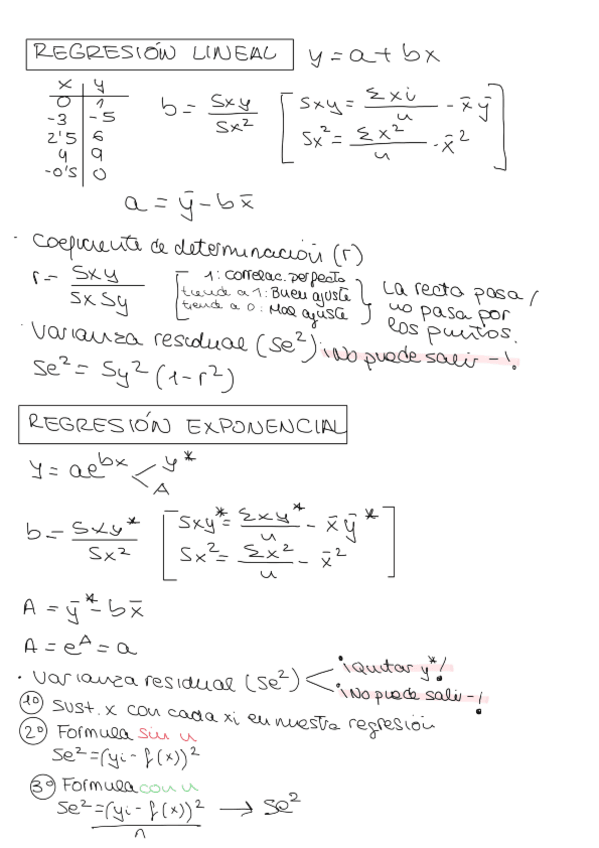 REGRESIÓN LINEAL y = a + bx
x | y
0 | 1
-3 | -5
2'5 | 6
4 | 9
-0'5 | 0
b = Sxy / Sx² [ Sxy = Σxi / n - x̄ȳ
Sx² = Σx² / n - x̄² ]
a = ȳ - bx̄
· Coeficiente de determinación (r)
r = Sxy / SxSy [ 1: correlac. perfecta
tiende a 1: Buen ajuste
tiende a 0: Mal ajuste ] La recta pasa / no pasa por los puntos.
· Varianza residual (Se²) ¡No puede salir -!
Se² = Sy² (1-r²)
REGRESIÓN EXPONENCIAL
y = ae^bx < y*
A
b = Sxy* / Sx² [ Sxy* = Σxy* / n - x̄ȳ*
Sx² = Σx² / n - x̄² ]
A = ȳ* - bx̄
A = e^A = a
· Varianza residual (Se²) < ¡Quitar y*!
¡No puede salir -!
1º Sust. x con cada xi en nuestra regresión
2º Formula sin n
Se² = (yi - f(x))²
3º Formula con n
Se² = (yi - f(x))² / n → Se²